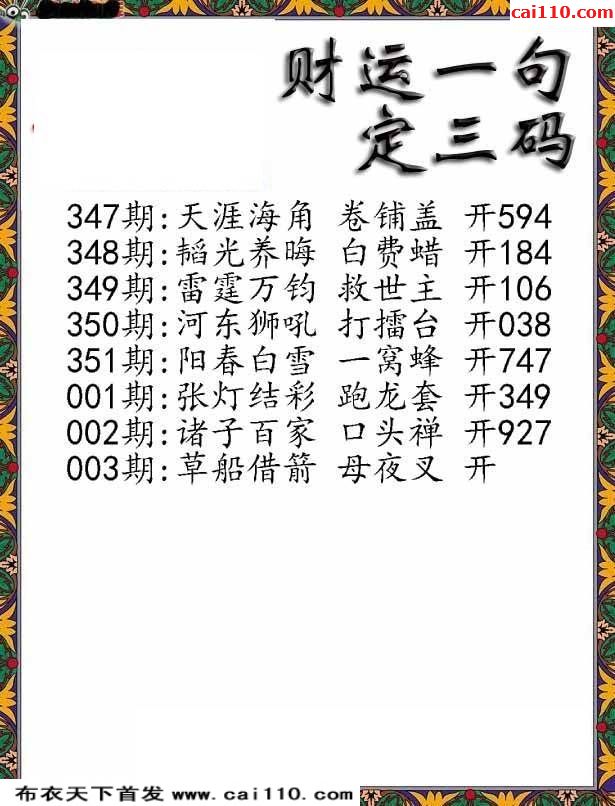 cai110.com
财运一句
定三码
347期:天涯海角 卷铺盖 开594
348期:韬光养晦 白费蜡 开184
349期:雷霆万钧 救世主 开106
350期:河东狮吼 打擂台 开038
351期:阳春白雪 一窝蜂 开747
001期:张灯结彩 跑龙套 开349
002期:诸子百家 口头禅 开927
003期:草船借箭 母夜叉 开
布衣天下首发 www.cai110.com